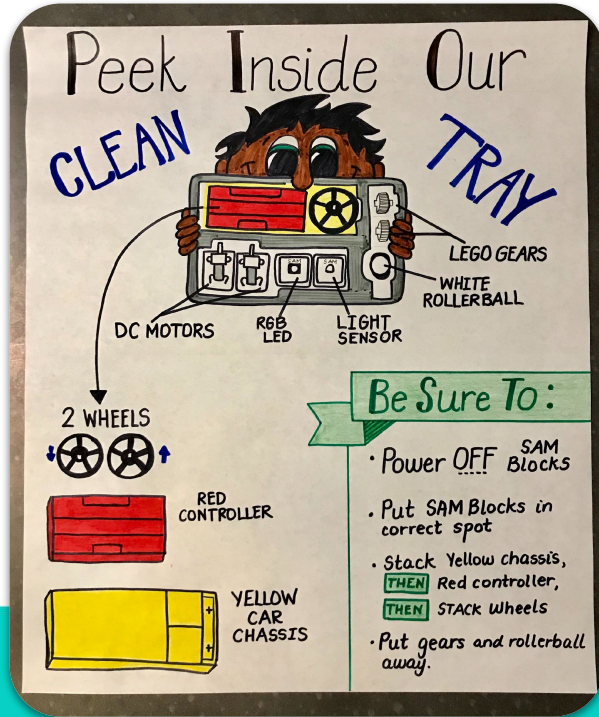 Peek Inside Our
CLEAN TRAY
SAM
SAM
LEGO GEARS
WHITE
ROLLERBALL
DC MOTORS
RGB
LED
LIGHT
SENSOR
2 WHEELS
RED
CONTROLLER
YELLOW
CAR
CHASSIS
Be Sure To:
• Power OFF SAM
Blocks
• Put SAM Blocks in
correct spot
• Stack Yellow chassis,
THEN Red controller,
THEN STACK Wheels
• Put gears and rollerball
away.